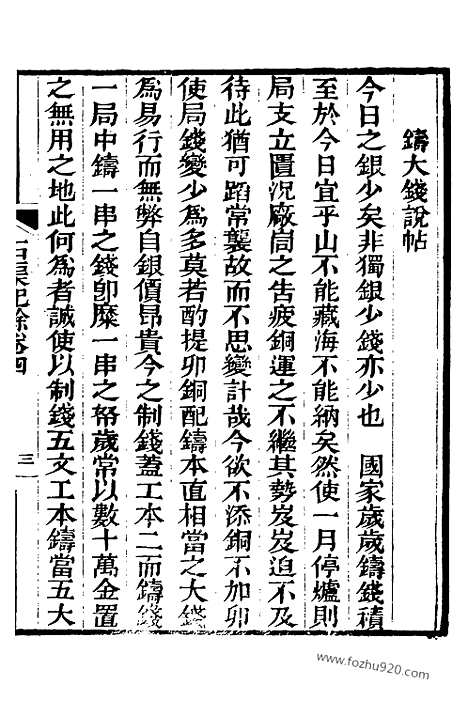 鑄大錢說帖
今日之銀少矣非獨銀少錢亦少也　國家歲歲鑄錢積
至於今日宜乎山不能藏海不能納矣然使一月停爐則
局支立匱況廠峝之告疲銅運之不繼其勢岌岌迫不及
待此猶可蹈常襲故而不思變計哉今欲不添銅不加卯
使局錢變少爲多莫若酌提卯銅配鑄本直相當之大錢
爲易行而無弊自銀價昂貴今之制錢蓋工本二而鑄錢
一局中鑄一串之錢卽糜一串之帑歲常以數十萬金置
之無用之地此何爲者誠使以制錢五文工本鑄當五大
餘卷四
三
www.fozhu920.com